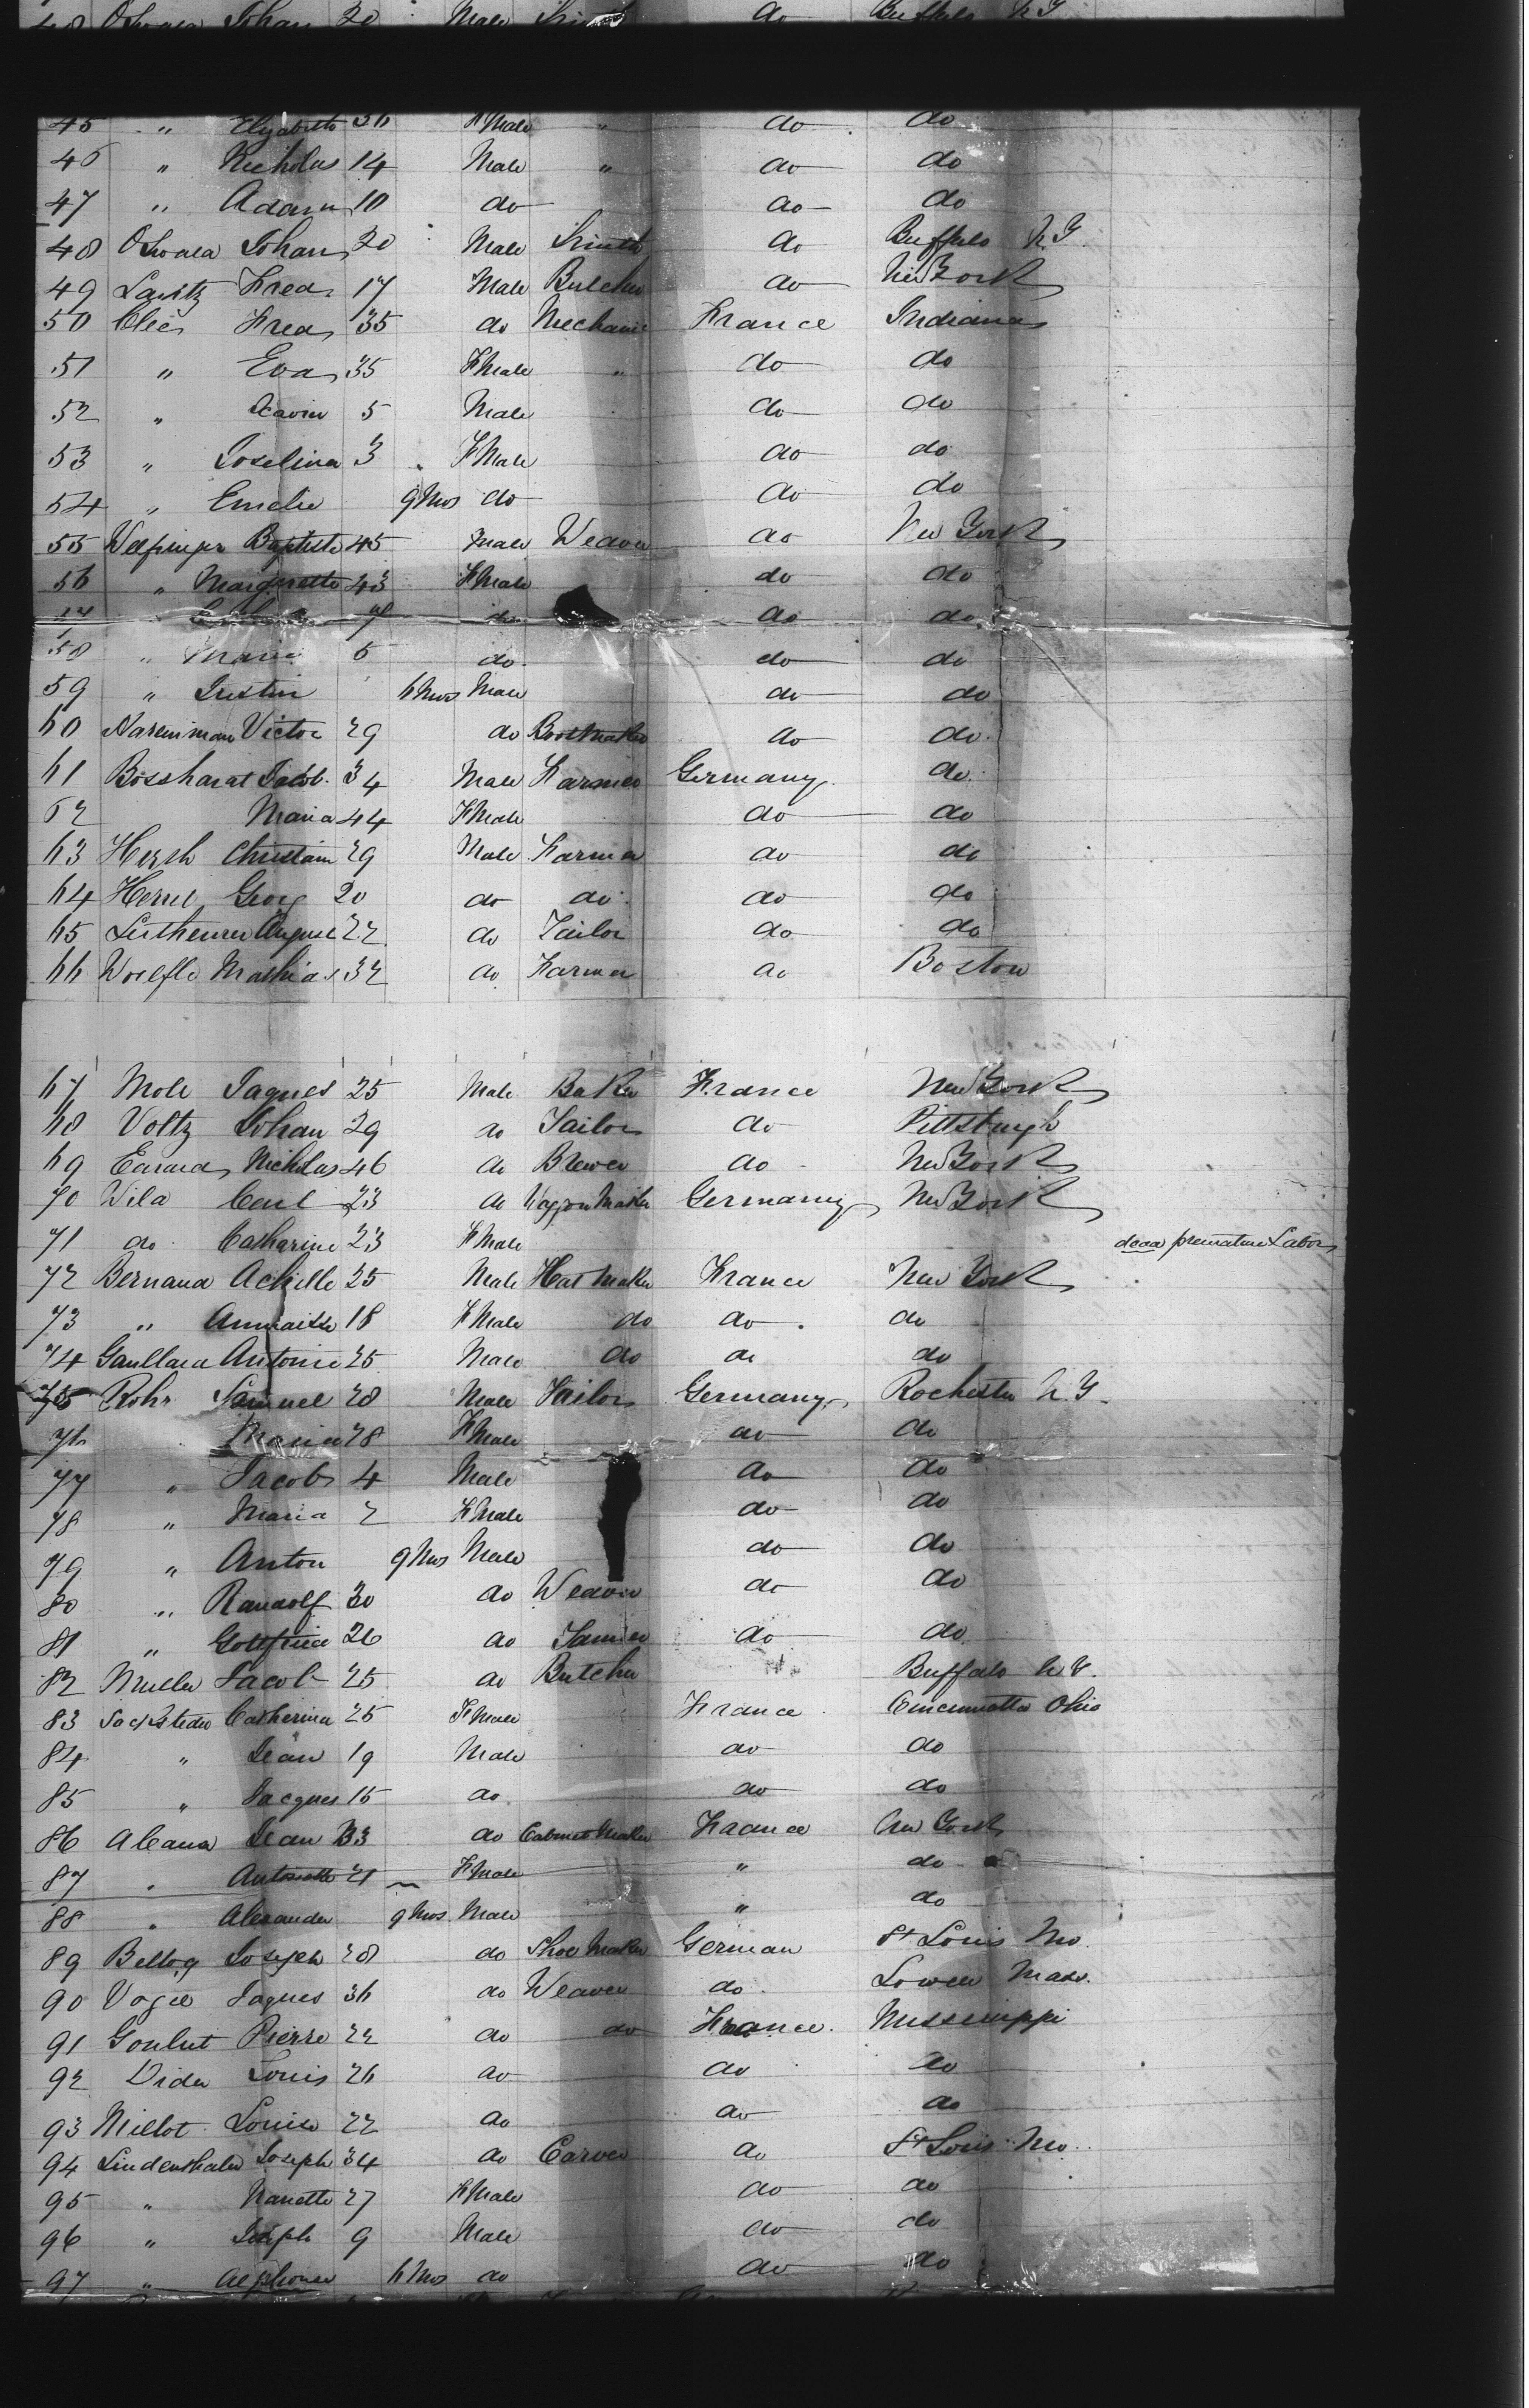 48 Johan 20 Male do Buffalo N Y
45 " Elizabeth 36 FMale " do do
46 " Nicholas 14 Male " do do
47 " Adam 10 do do do
48 Oswald Johan 20 Male Smith do Buffalo N.Y.
49 Lautz Fred 17 Male Butcher do New York
50 Fred 35 do Mechanic France Indiana
51 " Eva 35 FMale " do do
52 " Xavier 5 Male do do
53 " Joselina 3 " FMale do do
54 " Emelie 9 Mos do do do
55 Baptiste 45 Male Weaver do New York
56 " Margurette 43 FMale do do
7 do do do
58 " Marie 5 do do do
59 " Justin 6 Mos Male do do
60 Victor 29 do Bootmaker do do
61 Bosshardt Jacob 34 Male Farmer Germany do
62 Maria 44 FMale do do
63 Hersh Christian 29 Male Farmer do do
64 Georg 20 do do do do
65 August 22 do Tailor do do
66 Woelfle Mathias 32 do Farmer do Boston
67 Mole Jaques 25 Male Baker France New York
68 Voltz Johan 29 do Tailor do Pittsburgh
69 Nicholas 46 do Brewer do New York
70 Wild Carl 23 do Wagon Maker Germany New York
71 do Catharine 23 FMale dead premature Labor
72 Bernard Achille 25 Male Hat Maker France New York
73 " 18 FMale do do do
74 Gaullard Antoine 25 Male do do do
75 Rohr Samuel 28 Male Tailor Germany Rochester N.Y.
76 Maria 28 FMale do do
77 " Jacob 4 Male do do
78 " Maria 2 FMale do do
79 " Anton 9 Mos Male do do
80 " Randolf 30 do Weaver do do
81 " Gottfried 26 do do do
82 Muller Jacob 25 do Butcher Buffalo N.Y.
83 Sacksteder Catherina 25 FMale France Cincinnatta Ohio
84 " Jean 19 Male do do
85 " Jacques 15 do do do
86 Jean 33 do Cabinet Maker France New York
87 " Antoinette 21 FMale " do
88 " Alexander 9 Mos Male " do
89 Joseph 28 do Shoe Maker German St Louis Mo.
90 Vogel Jaques 36 do Weaver do Lowell Mass.
91 Goulut Pierre 22 do do France Mississippi
92 Didier Louis 26 do do do
93 Millot Louise 22 do do do
94 Lindenthaler Joseph 34 do Carver do St Louis Mo.
95 " Nanette 27 FMale do do
96 " Joseph 9 Male do do
97 " Alphonse 6 Mos do do do